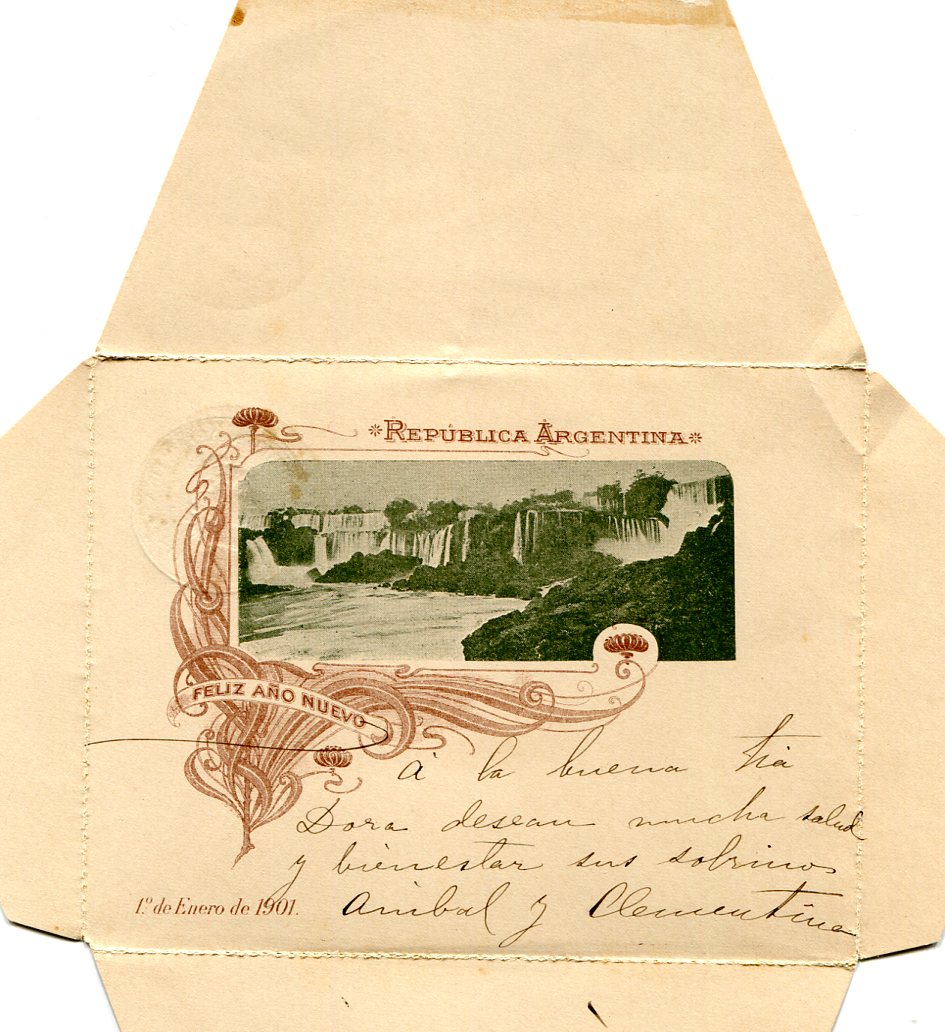 *REPÚBLICA ARGENTINA*
FELIZ AÑO NUEVO
á la buena tia
Dora desean mucha salud
y bienestar sus sobrinos
Anibal y Clementina
1.º de Enero de 1901.